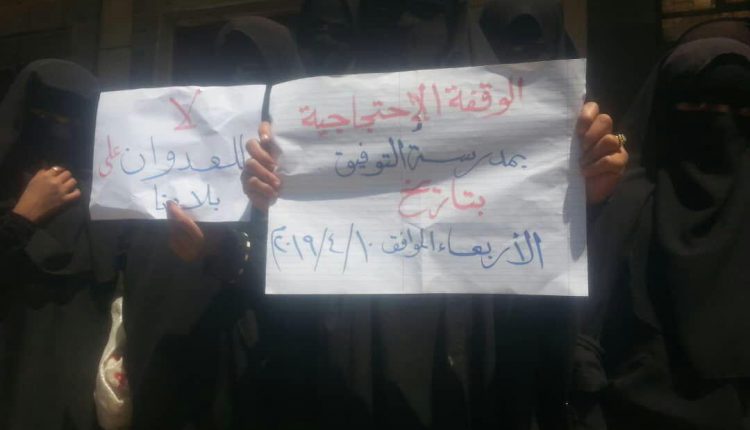 الوقفة الإحتجاجية
بمدرسة التوفيق
بتاريخ
الأربعاء الموافق ٢٠١٩/٤/١٠م
لا
للعدوان على
بلادنا